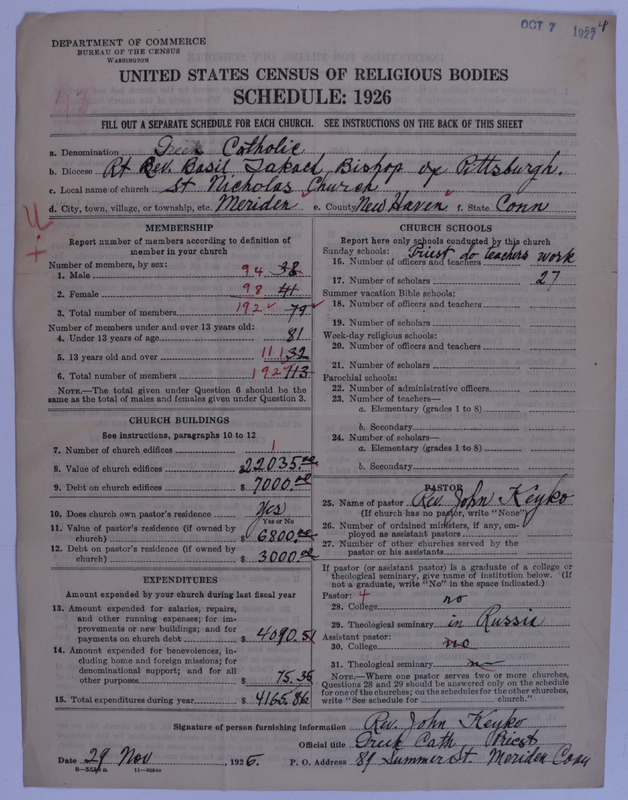 OCT 7 1927 4
DEPARTMENT OF COMMERCE
BUREAU OF THE CENSUS
WASHINGTON
UNITED STATES CENSUS OF RELIGIOUS BODIES
SCHEDULE: 1926
FILL OUT A SEPARATE SCHEDULE FOR EACH CHURCH. SEE INSTRUCTIONS ON THE BACK OF THIS SHEET
a. Denomination Greek Catholic
b. Diocese Rt Rev. Basil Takach Bishop of Pittsburgh.
c. Local name of church St Nicholas Church
d. City, town, village, or township, etc. Meriden e. County New Haven f. State Conn
MEMBERSHIP
Report number of members according to definition of
member in your church
Number of members, by sex:
1. Male 94 38
2. Female 98 41
3. Total number of members 192 79
Number of members under and over 13 years old:
4. Under 13 years of age 81
5. 13 years old and over 111 32
6. Total number of members 192 113
NOTE.—The total given under Question 6 should be the
same as the total of males and females given under Question 3.
CHURCH BUILDINGS
See instructions, paragraphs 10 to 12
7. Number of church edifices 1
8. Value of church edifices $ 22035.00
9. Debt on church edifices $ 7000.00
10. Does church own pastor's residence Yes
Yes or No
11. Value of pastor's residence (if owned by
church) $ 6800.00
12. Debt on pastor's residence (if owned by
church) $ 3000.00
EXPENDITURES
Amount expended by your church during last fiscal year
13. Amount expended for salaries, repairs,
and other running expenses; for im-
provements or new buildings; and for
payments on church debt $ 4090.51
14. Amount expended for benevolences, in-
cluding home and foreign missions; for
denominational support; and for all
other purposes $ 75.35
15. Total expenditures during year $ 4165.86
CHURCH SCHOOLS
Report here only schools conducted by this church
Sunday schools:
16. Number of officers and teachers Priest do teachers work
17. Number of scholars 27
Summer vacation Bible schools:
18. Number of officers and teachers
19. Number of scholars
Week-day religious schools:
20. Number of officers and teachers
21. Number of scholars
Parochial schools:
22. Number of administrative officers
23. Number of teachers—
a. Elementary (grades 1 to 8)
b. Secondary
24. Number of scholars—
a. Elementary (grades 1 to 8)
b. Secondary
PASTOR
25. Name of pastor Rev. John Keyko
(If church has no pastor, write "None")
26. Number of ordained ministers, if any, em-
ployed as assistant pastors
27. Number of other churches served by the
pastor or his assistants
If pastor (or assistant pastor) is a graduate of a college or
theological seminary, give name of institution below. (If
not a graduate, write "No" in the space indicated.)
Pastor: 4
28. College no
29. Theological seminary in Russia
Assistant pastor:
30. College no
31. Theological seminary no
NOTE.—Where one pastor serves two or more churches,
Questions 28 and 29 should be answered only on the schedule
for one of the churches; on the schedules for the other churches,
write "See schedule for church."
Signature of person furnishing information Rev. John Keyko
Official title Greek Cath Priest
Date 29 Nov, 1926. P. O. Address 89 Summer St. Meriden Conn